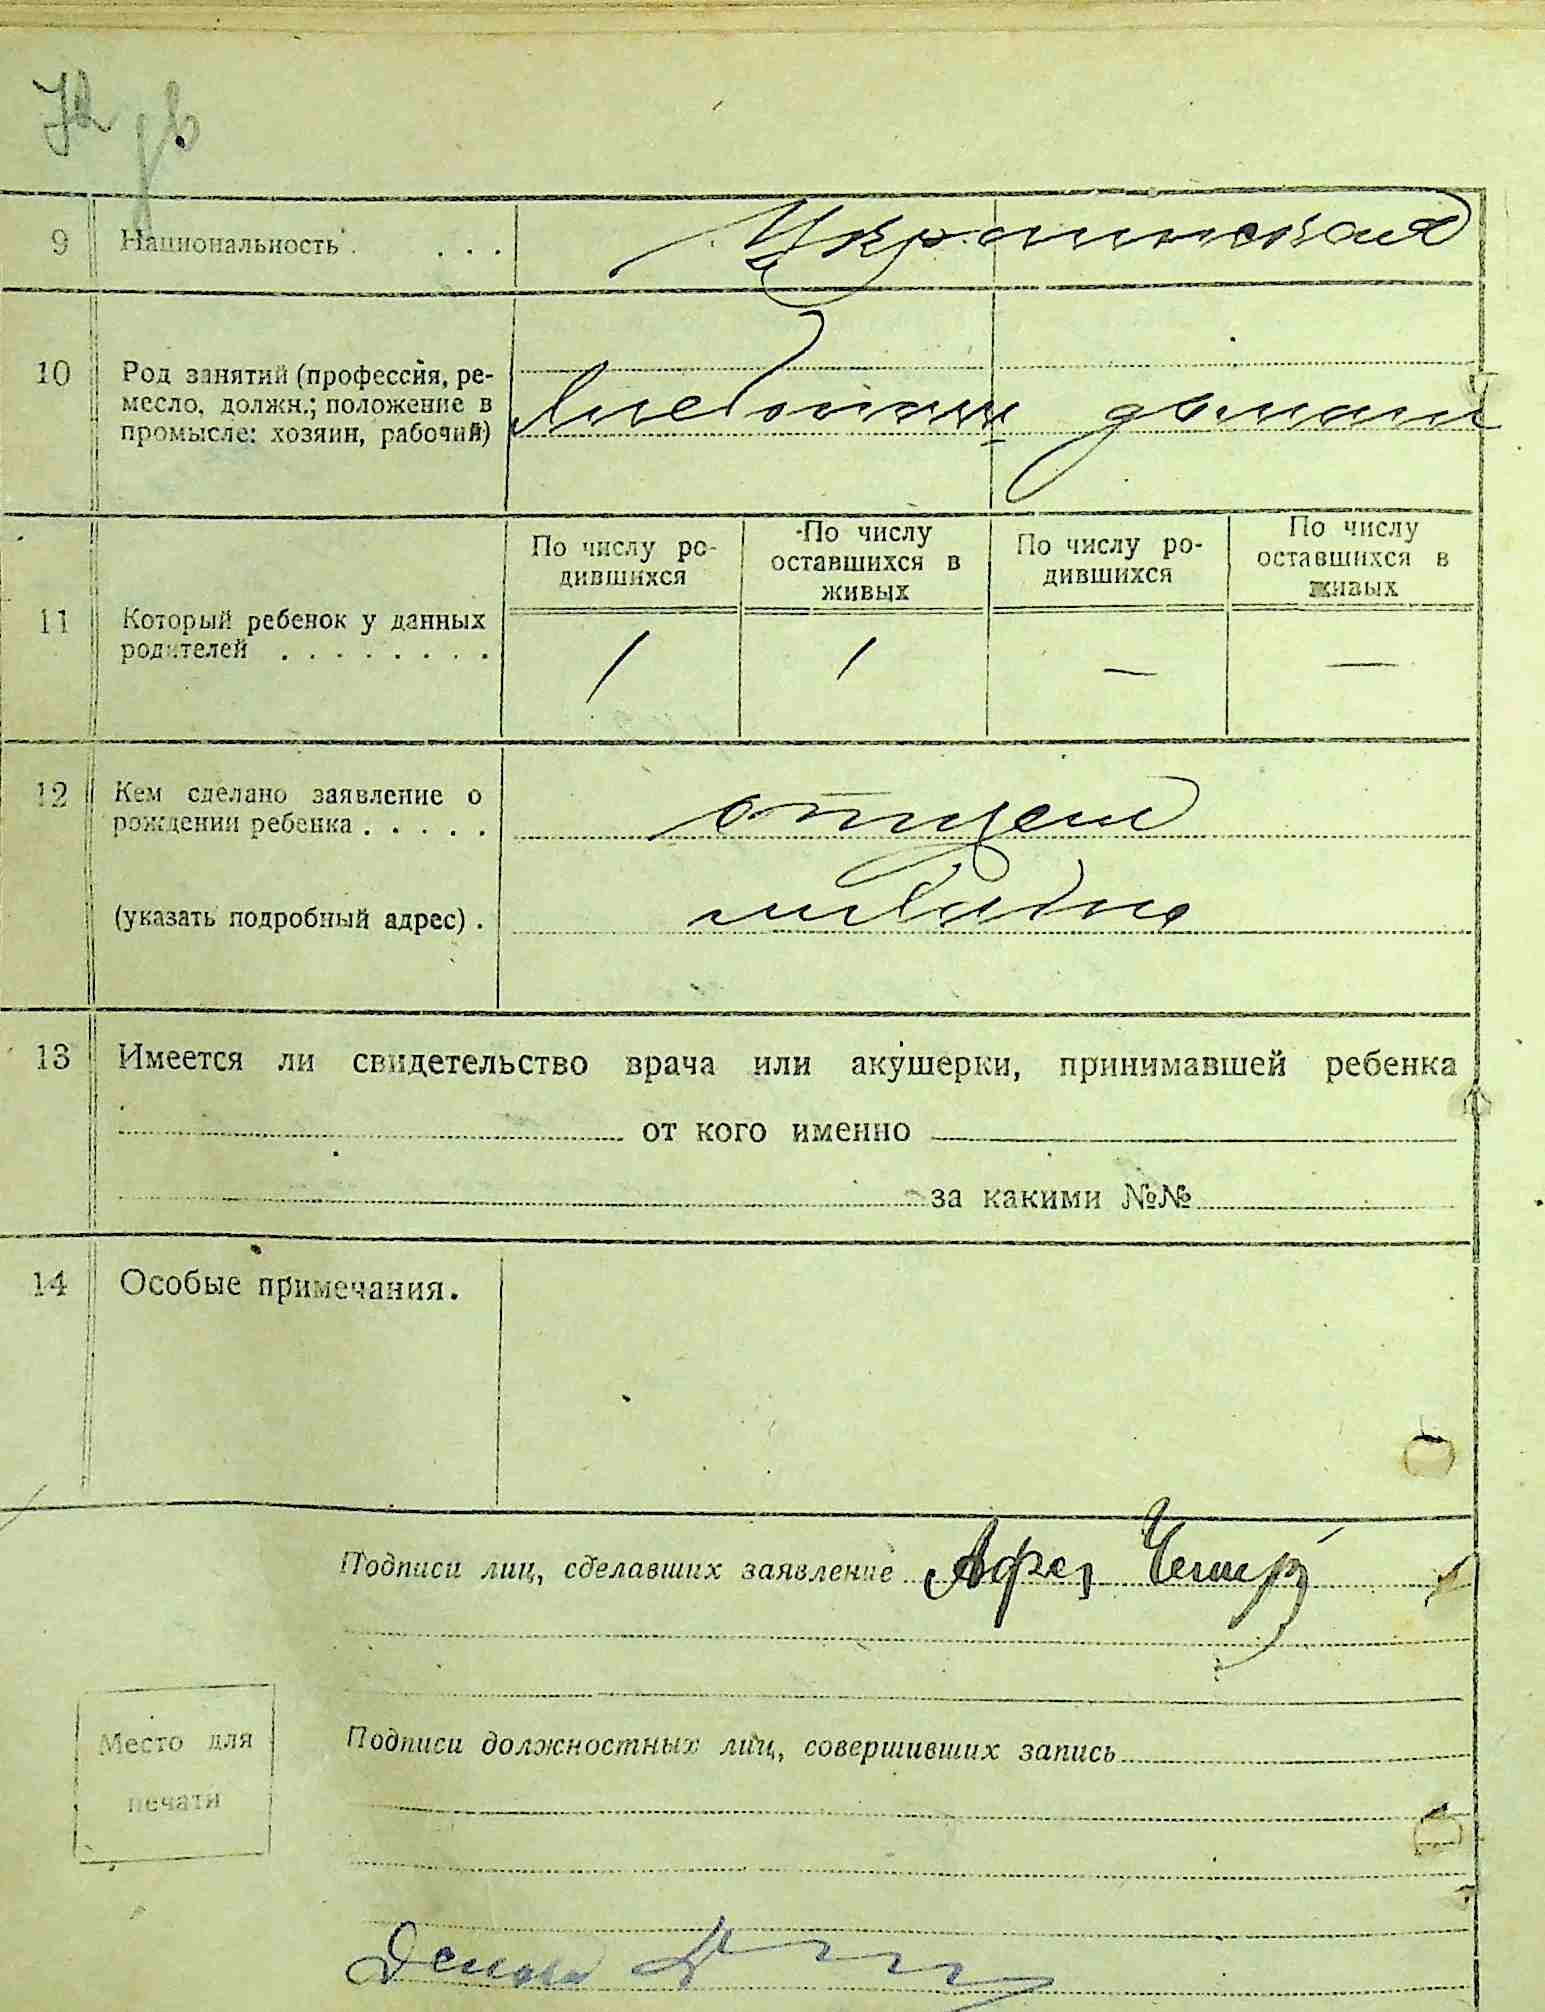 9 Национальность . . . . Украинская
10 Род занятий (профессия, ре-
месло, должн.; положение в
промысле: хозяин, рабочий)
дьмаш
11 Который ребенок у данных
родителей . . . . . . . .
По числу ро-
дившихся
По числу
оставшихся в
живых
По числу ро-
дившихся
По числу
оставшихся в
живых
/ / — —
12 Кем сделано заявление о
рождении ребенка . . . . . отцем
(указать подробный адрес) .
13 Имеется ли свидетельство врача или акушерки, принимавшей ребенка
от кого именно
за какими №№
14 Особые примечания.
Подписи лиц, сделавших заявление
Место для
печати
Подписи должностных лиц, совершивших запись